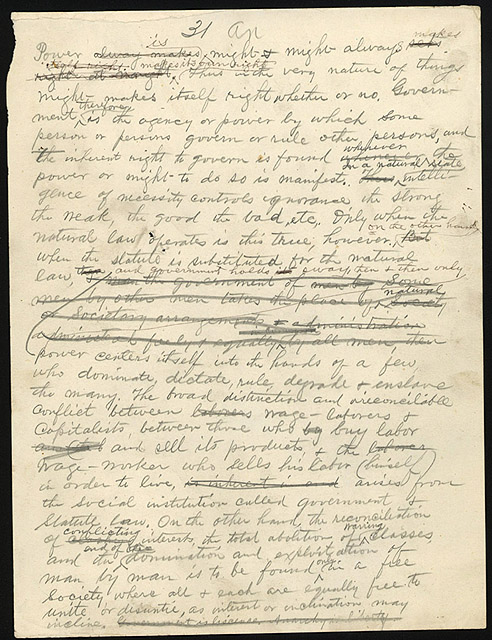 31 Ap
is makes
Power always makes might & might always sets
makes its own right
right. Thus in the very nature of things
might makes itself right whether or no. Govern-
therefore
ment, is the agency or power by which some
person or persons govern or rule other persons, and
wherever
the inherent right to govern is found the
in a natural state
power or might to do so is manifest. Intelli-
gence of necessity controls ignorance, the strong
the weak, the good the bad, etc. Only when the
on the other hand
natural law operates is this true, however, But
when the statute is substituted for the natural
law, and government holds sway, then & then only
the government of men by some
natural
men by other men takes the place of society
or Societary arrangements & administration
administered freely & equally by all men then
power centers itself into the hands of a few
who dominate, dictate, rule, degrade & enslave
the many. The broad distinction and irreconcilable
conflict between laborers wage-laborers &
capitalists, between those who buy labor
and sell its products, & the laborer
wage-worker who sells his labor (himself)
in order to live, arises from
the social institution called government &
Statute law. On the other hand, the reconciliation
conflicting warring
of interests, the total abolition of classes
end of the
and the domination and exploitation of
only
man by man is to be found in a free
Society where all & each are equally free to
unite or disunite, as interest or inclination may
incline.